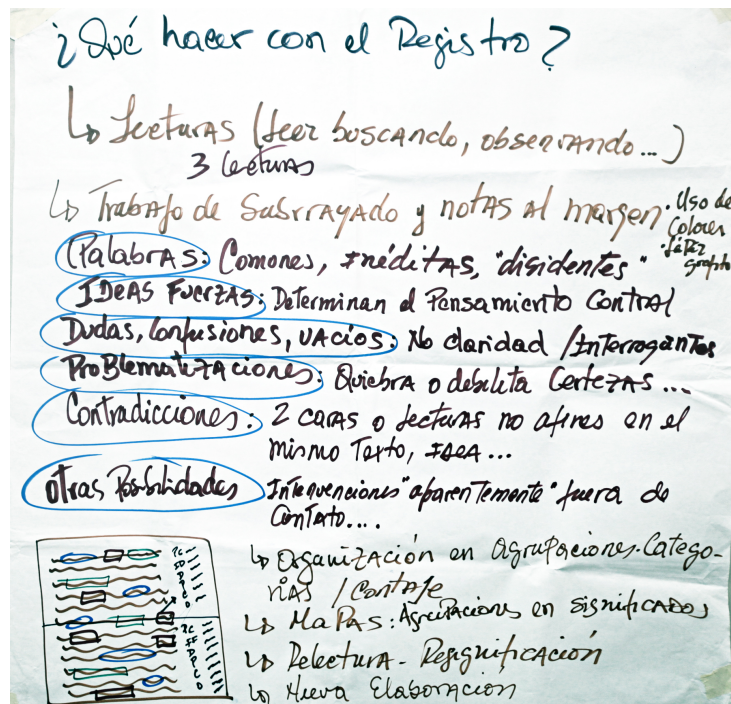 ¿Qué hacer con el Registro?
↳ Lecturas (Leer buscando, observando...)
3 Lecturas
↳ Trabajo de Subrrayado y notas al margen
· Uso de
Colores
· Lápiz
grafito
Palabras: Comones, Inéditas, "disidentes"
IDeas Fuerzas: Determinan el Pensamiento Central
Dudas, Confusiones, vacíos: No claridad / Interrogantes
ProBlematizaciones: Quiebra o debilita Certezas ...
Contradicciones: 2 caras o Lecturas no afines en el
mismo Texto, Idea...
otras Posibilidades Intervenciones "aparentemente" fuera de
Contexto....
↳ Organización en Agrupaciones. Catego-
rías / Contaje
↳ MaPas: Agrupaciones en significados
↳ Relectura - Resignificación
↳ Nueva Elaboración